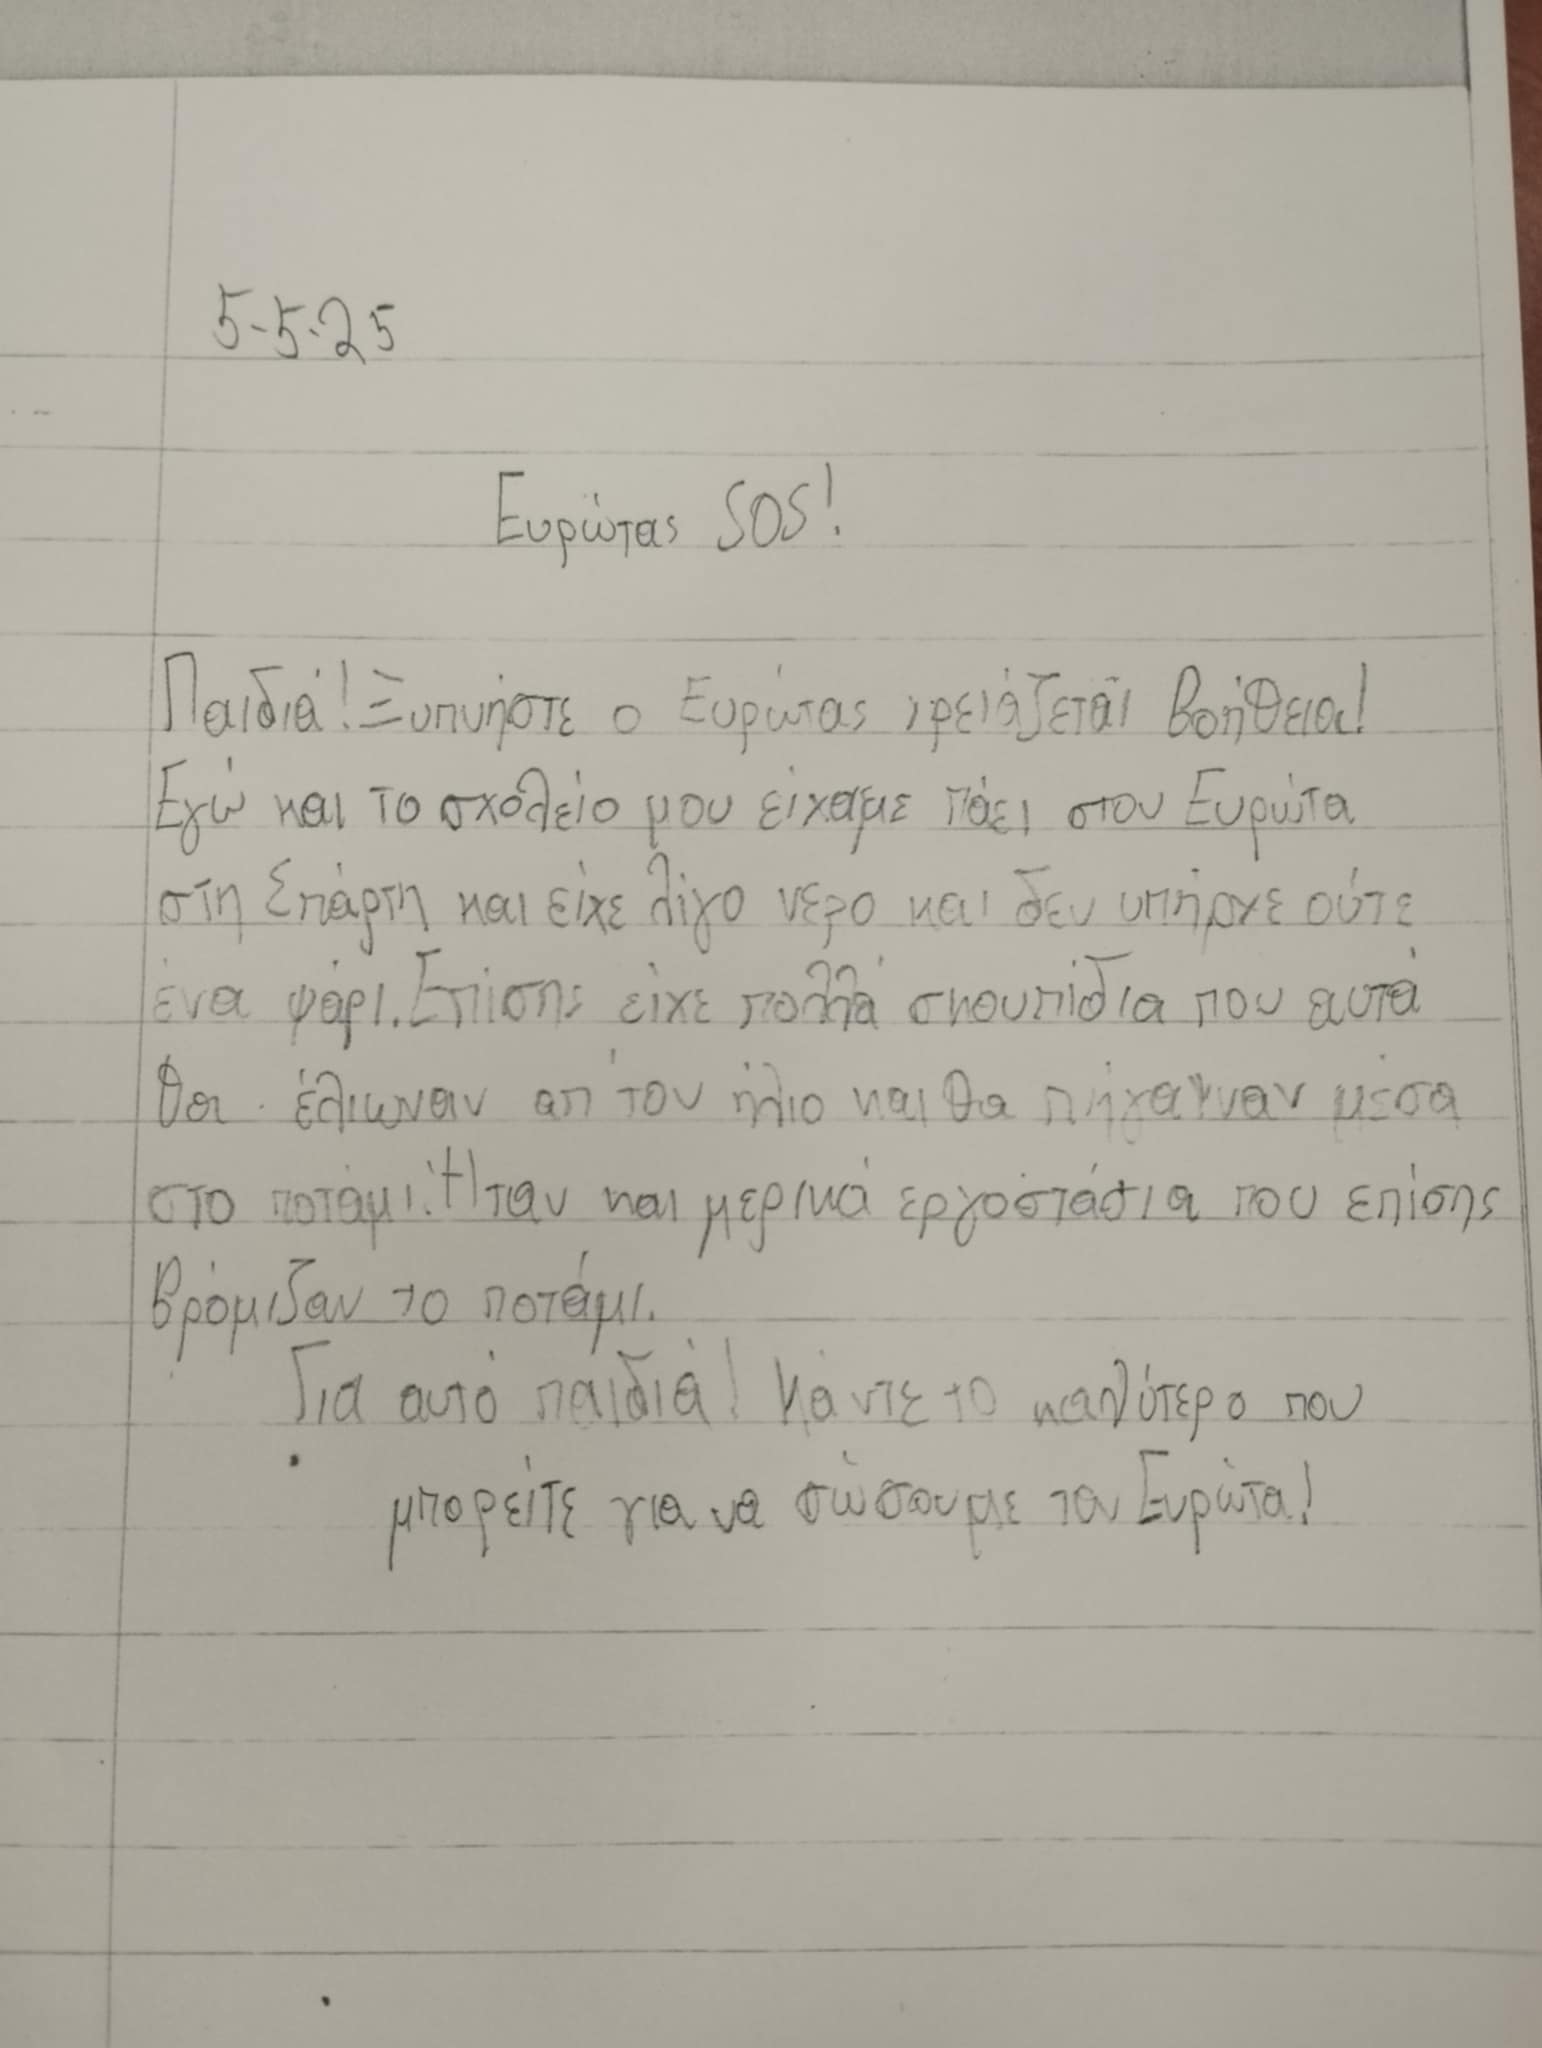 5-5-25
Ευρώτας SOS!
Παιδιά! Ξυπνήστε ο Ευρώτας χρειάζεται βοήθεια!
Εγώ και το σχολείο μου είχαμε πάει στον Ευρώτα
στη Σπάρτη και είχε λίγο νερο και δεν υπήρχε ούτε
ένα ψάρι. Επίσης είχε πολλά σκουπίδια που αυτά
θα έλιωναν απ' τον ήλιο και θα πήγαιναν μέσα
στο ποτάμι. Ήταν και μερικά εργοστάσια που επίσης
βρόμιζαν το ποτάμι.
Για αυτό παιδιά! Κάντε το καλύτερο που
μπορείτε για να σώσουμε τον Ευρώτα!